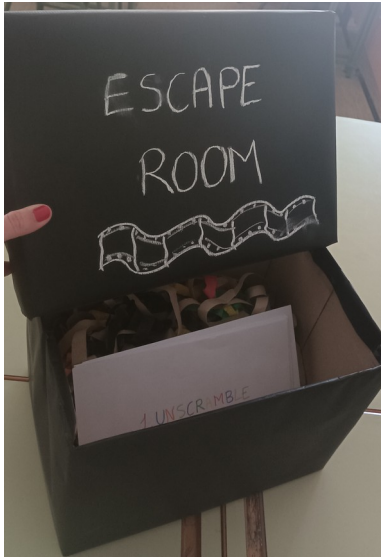 ESCAPE
ROOM
1 UNSCRAMBLE